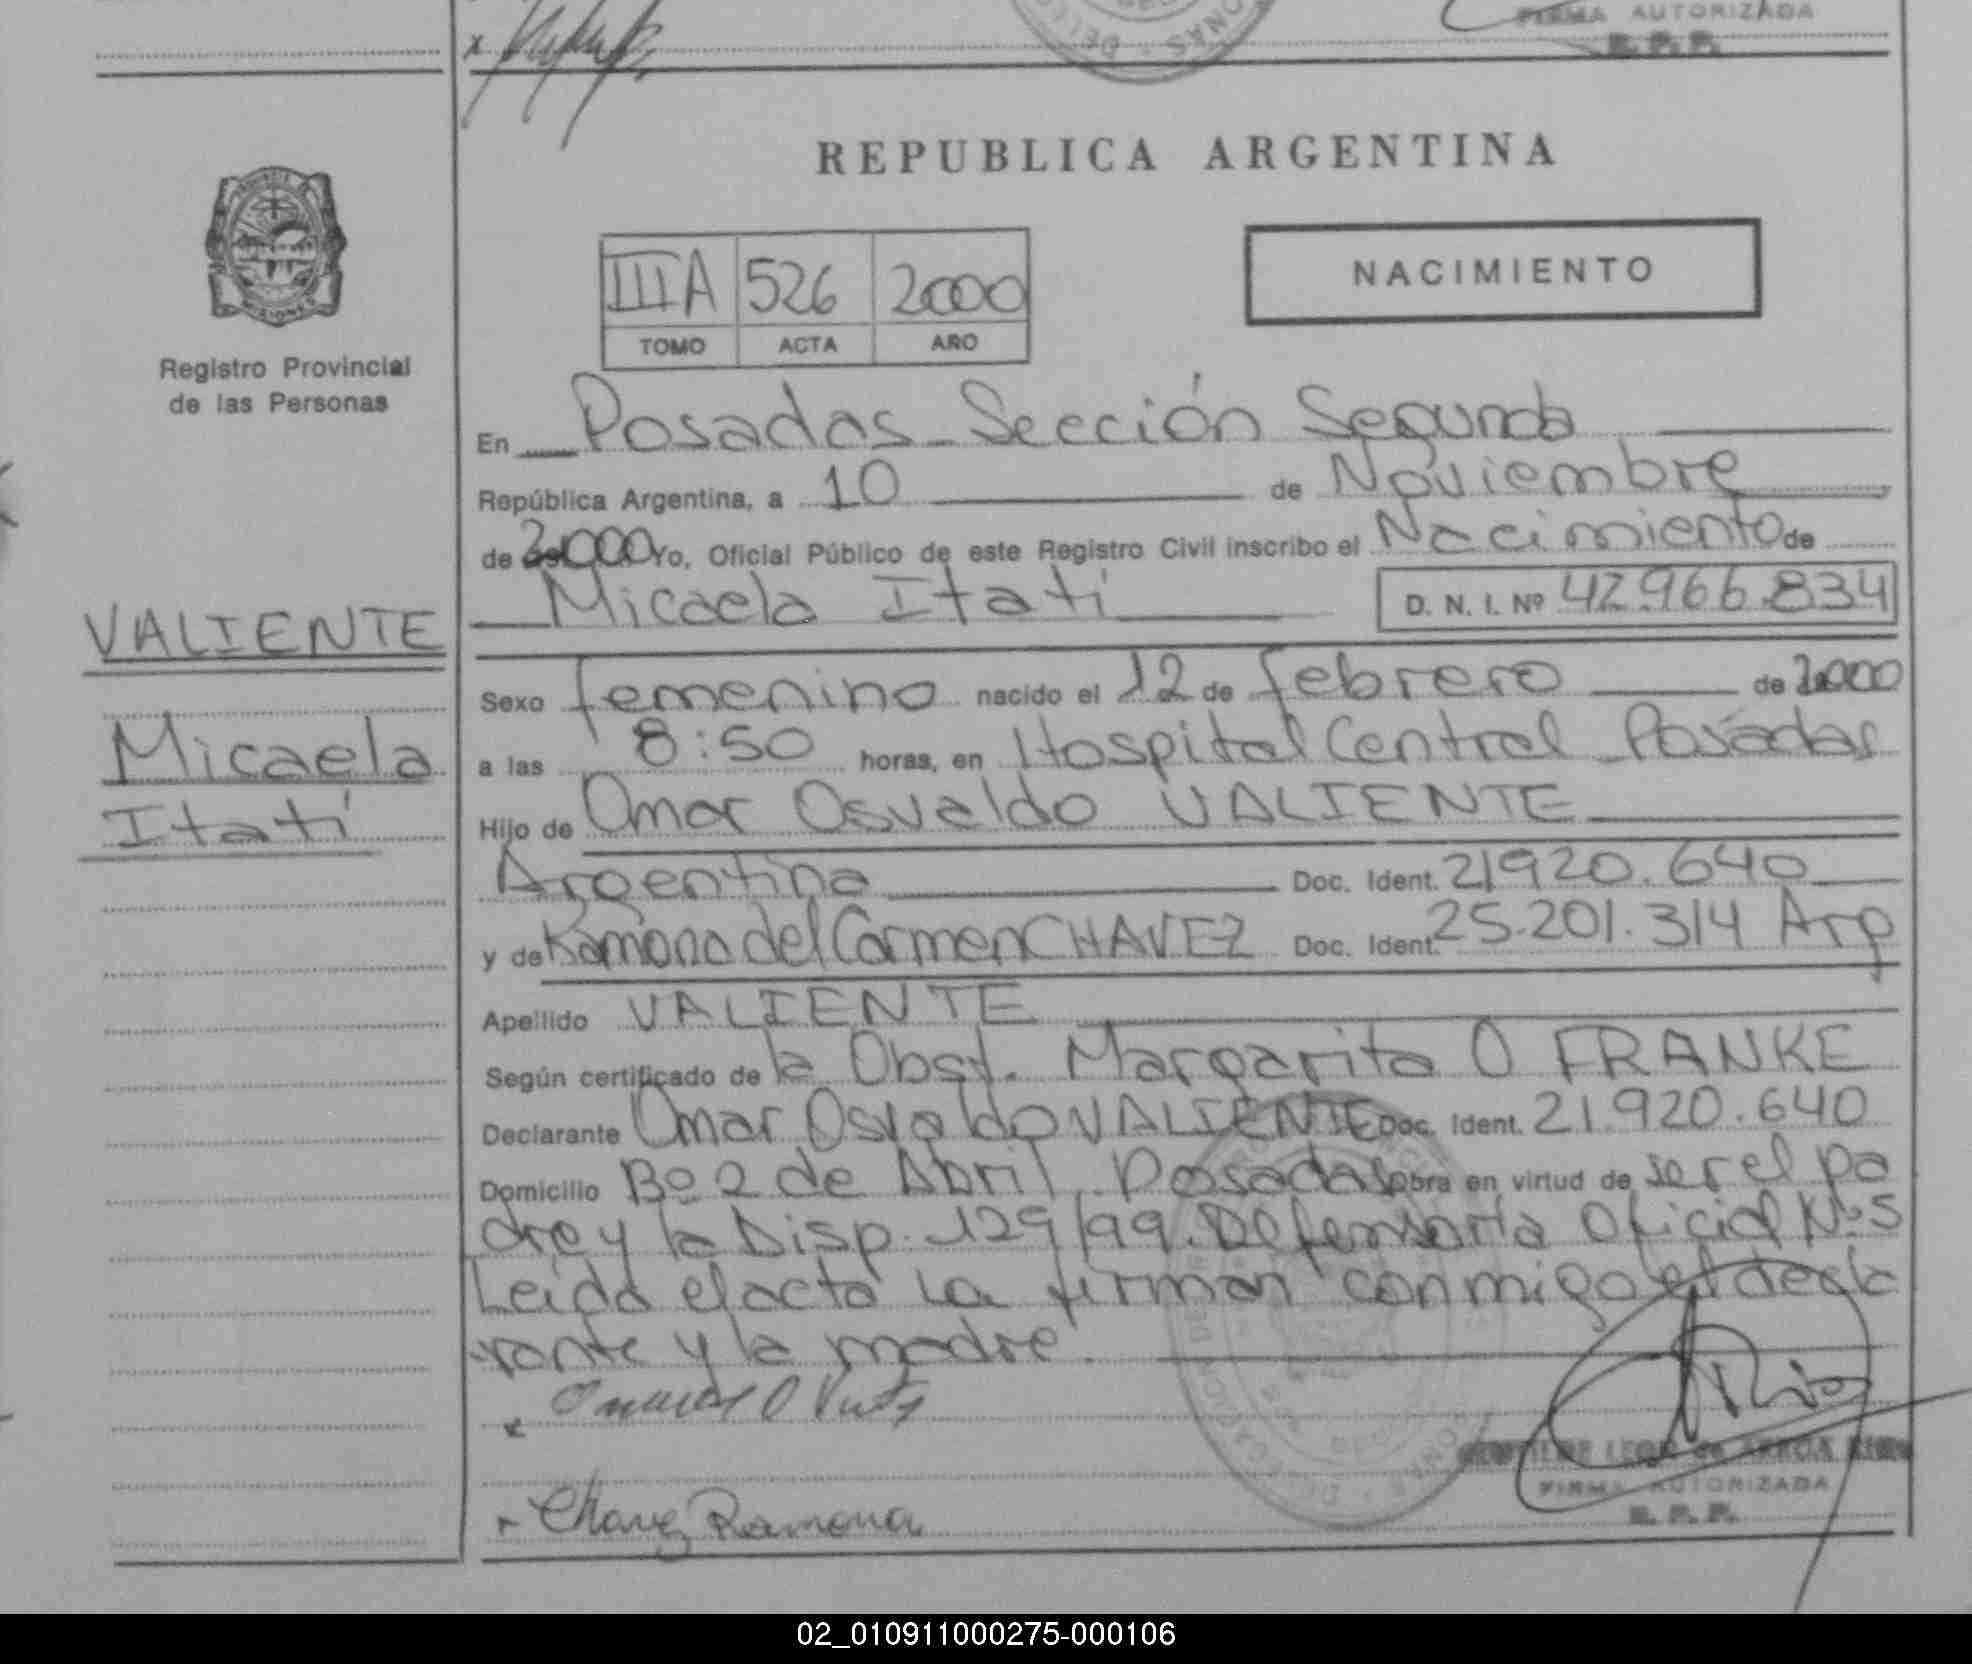 FIRMA AUTORIZADA
R. P. P.
REPUBLICA ARGENTINA
NACIMIENTO
IIIA 526 2000
TOMO ACTA AÑO
Registro Provincial
de las Personas
En Posadas Sección Segunda
República Argentina, a 10 de Noviembre
de 2.000 Yo, Oficial Público de este Registro Civil inscribo el Nacimiento de
Micaela Itatí D. N. I. Nº 42.966.834
VALIENTE
Micaela
Itatí
Sexo femenino nacido el 12 de febrero de 2.000
a las 8:50 horas, en Hospital Central Posadas
Hijo de Omar Osvaldo VALIENTE
Argentina Doc. Ident. 21920.640
y de Ramona del Carmen CHAVEZ Doc. Ident. 25.201.314 Arg
Apellido VALIENTE
Según certificado de la Obst. Margarita O FRANKE
Declarante Omar Osvaldo VALIENTE Doc. Ident. 21.920.640
Domicilio Bº 2 de Abril Posadas obra en virtud de ser el pa
dre y la Disp. 129/99. Defensoría Oficial Nº 5
Leída el acta la firman conmigo el decla
rante y la madre.
Chavez Ramona
FIRMA AUTORIZADA
R. P. P.
02_010911000275-000106